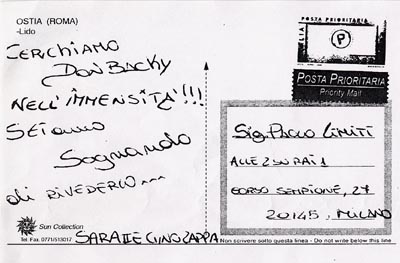 OSTIA (ROMA)
-Lido
CERCHIAMO
Don Backy
NELL'IMMENSITÀ!!!
STIAMO
Sognando
di RIVEDERLO...
Sun Collection
Tel. Fax. 0771/513017
SARA E GINO ZAPPA
POSTA PRIORITARIA
P
POSTA PRIORITARIA
Priority Mail
Sig. PAOLO LIMITI
ALLE 2 SU RAI 1
CORSO SEMPIONE, 27
20145, MILANO
Non scrivere sotto questa linea - Do not write below this line